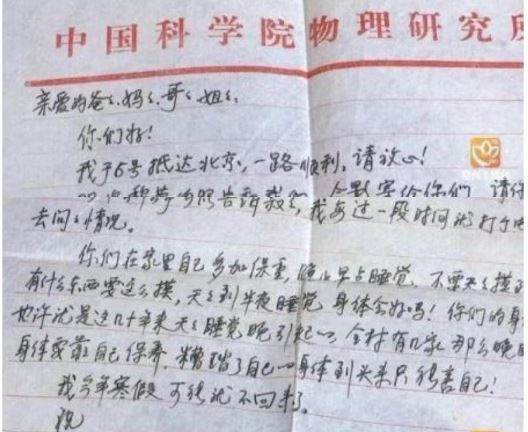 中国科学院物理研究
亲爱的爸爸、妈妈、哥哥、姐姐:
你们好!
我于5号抵达北京,一路顺利,请放心!
告诉我 给你们 请
去问问情况。 我每过一段时间就打个
你们在家里自己多加保重,晚上早点睡觉,不要天天摸
有什么东西要这么摸,天天到半夜睡觉 身体会好吗!你们的身
也许就是这几十年来天天睡觉晚引起 全村有几家那么晚
身体要靠自己保养,糟蹋了自己 身体到头来只能害自己!
我今年寒假可能就不回来了。
祝